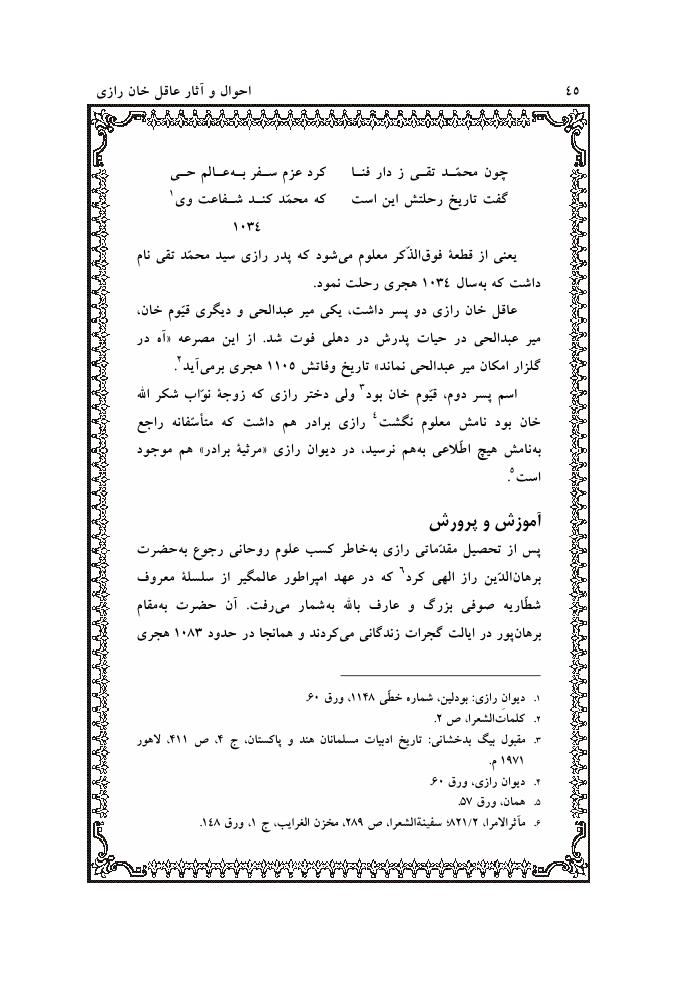 ٤٥ احوال و آثار عاقل خان رازی
چون محمّد تقی ز دار فنا کرد عزم سفر به‌عالم حی
گفت تاریخ رحلتش این است که محمّد کند شفاعت وی۱
۱۰۳٤
یعنی از قطعهٔ فوق‌الذّکر معلوم می‌شود که پدر رازی سید محمّد تقی نام
داشت که به‌سال ۱۰۳٤ هجری رحلت نمود.
عاقل خان رازی دو پسر داشت، یکی میر عبدالحی و دیگری قیّوم خان،
میر عبدالحی در حیات پدرش در دهلی فوت شد. از این مصرعه «آه در
گلزار امکان میر عبدالحی نماند» تاریخ وفاتش ۱۱۰۵ هجری برمی‌آید۲.
اسم پسر دوم، قیّوم خان بود۳ ولی دختر رازی که زوجهٔ نوّاب شکر الله
خان بود نامش معلوم نگشت٤ رازی برادر هم داشت که متأسّفانه راجع
به‌نامش هیچ اطّلاعی به‌هم نرسید، در دیوان رازی «مرثیهٔ برادر» هم موجود
است۵.
آموزش و پرورش
پس از تحصیل مقدّماتی رازی به‌خاطر کسب علوم روحانی رجوع به‌حضرت
برهان‌الدّین راز الهی کرد۶ که در عهد امپراطور عالمگیر از سلسلهٔ معروف
شطّاریه صوفی بزرگ و عارف بالله به‌شمار می‌رفت. آن حضرت به‌مقام
برهان‌پور در ایالت گجرات زندگانی می‌کردند و همانجا در حدود ۱۰۸۳ هجری
۱. دیوان رازی: بودلین، شماره خطّی ۱۱۴۸، ورق ۶۰.
۲. کلمات‌الشعرا، ص ۲.
۳. مقبول بیگ بدخشانی: تاریخ ادبیات مسلمانان هند و پاکستان، ج ۴، ص ۴۱۱، لاهور
۱۹۷۱ م.
۴. دیوان رازی، ورق ۶۰.
۵. همان، ورق ۵۷.
۶. مآثرالامرا، ۸۲۱/۲؛ سفینةالشعرا، ص ۲۸۹، مخزن الغرایب، ج ۱، ورق ۱۴۸.